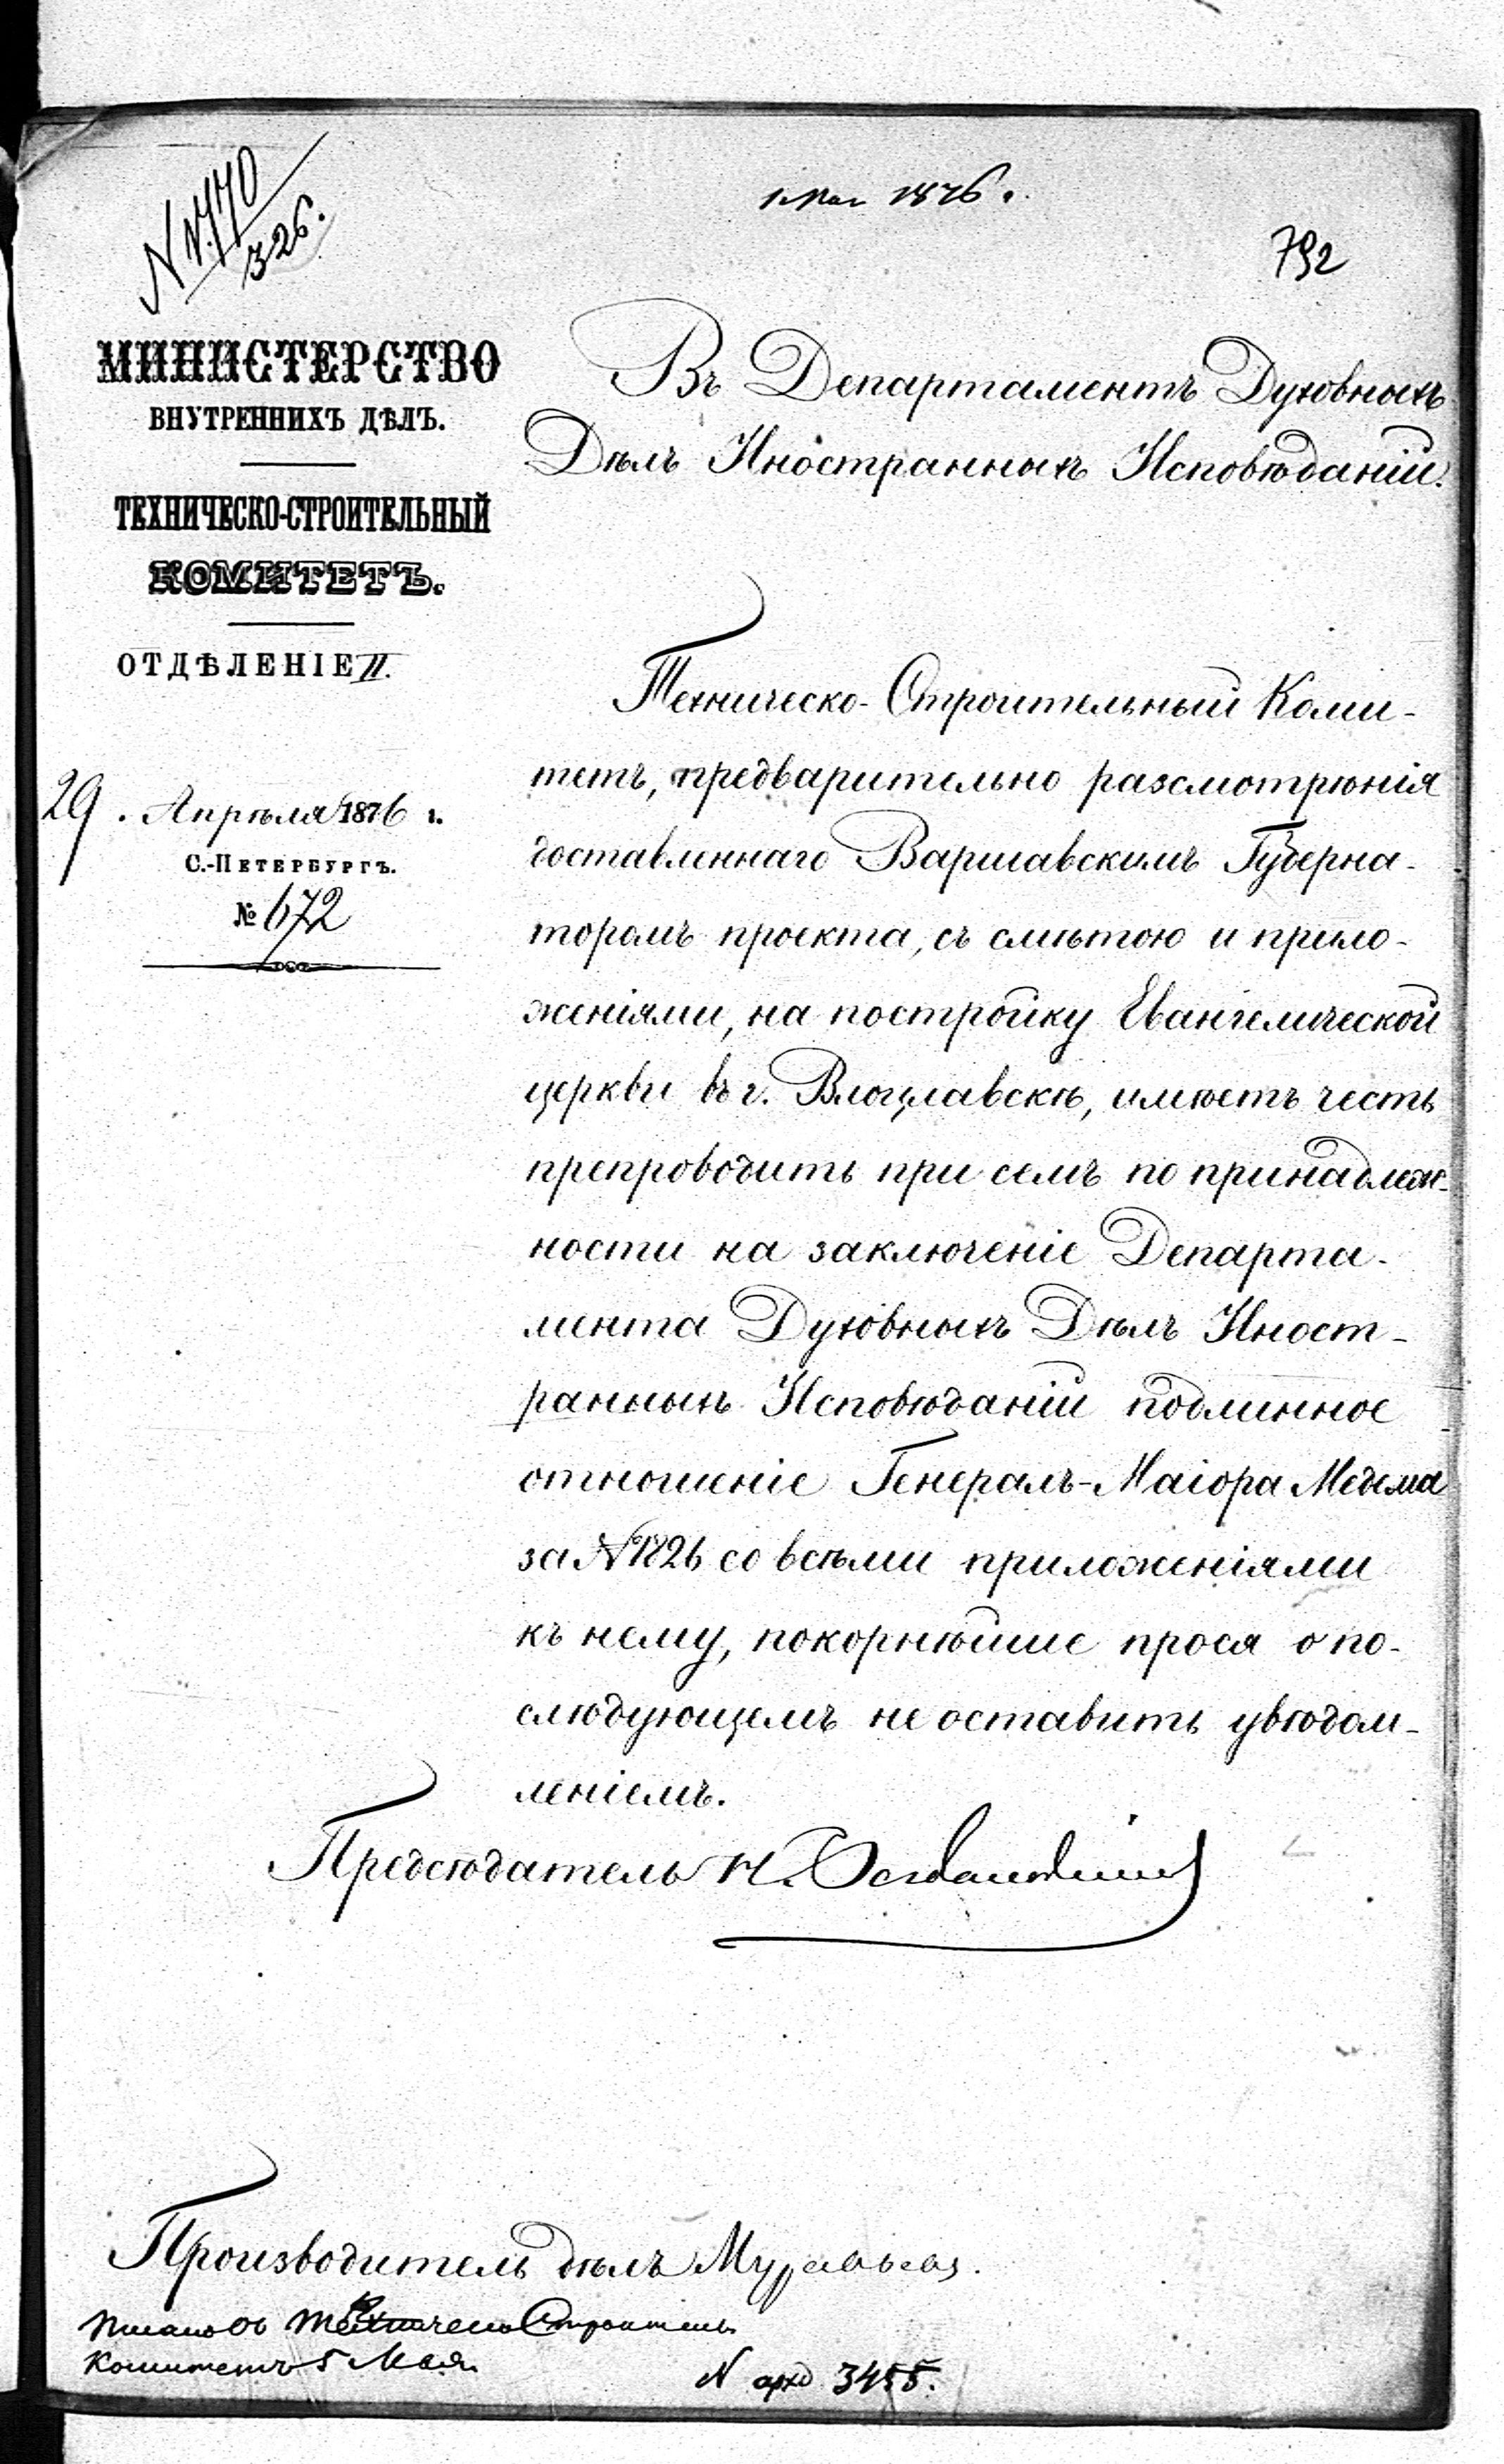 1 Мая 1876.
792
МИНИСТЕРСТВО
ВНУТРЕННИХЪ ДѢЛЪ.
ТЕХНИЧЕСКО-СТРОИТЕЛЬНЫЙ
КОМИТЕТЪ.
ОТДѢЛЕНІЕ II.
29. Апрѣля 1876 г.
С.-ПЕТЕРБУРГЪ.
№ 672
Въ Департаментъ Духовныхъ
Дѣлъ Иностранныхъ Исповѣданій.
Техническо-Строительный Коми-
тетъ, предварительно разсмотрѣнія
доставленнаго Варшавскимъ Губерна-
торомъ проекта, съ смѣтою и прило-
женіями, на постройку Евангелической
церкви въ г. Влоцлавскѣ, имѣетъ честь
препроводить при семъ по принадлеж-
ности на заключеніе Департа-
мента Духовныхъ Дѣлъ Иност-
ранныхъ Исповѣданій подлинное
отношеніе Генералъ-Маіора Медема
за № 1826 со всѣми приложеніями
къ нему, покорнѣйше прося о по-
слѣдующемъ не оставить увѣдом-
леніемъ.
Предсѣдатель Н.
Производитель дѣлъ Муравьевъ.
Комитетъ 5 Мая.
N 3455.